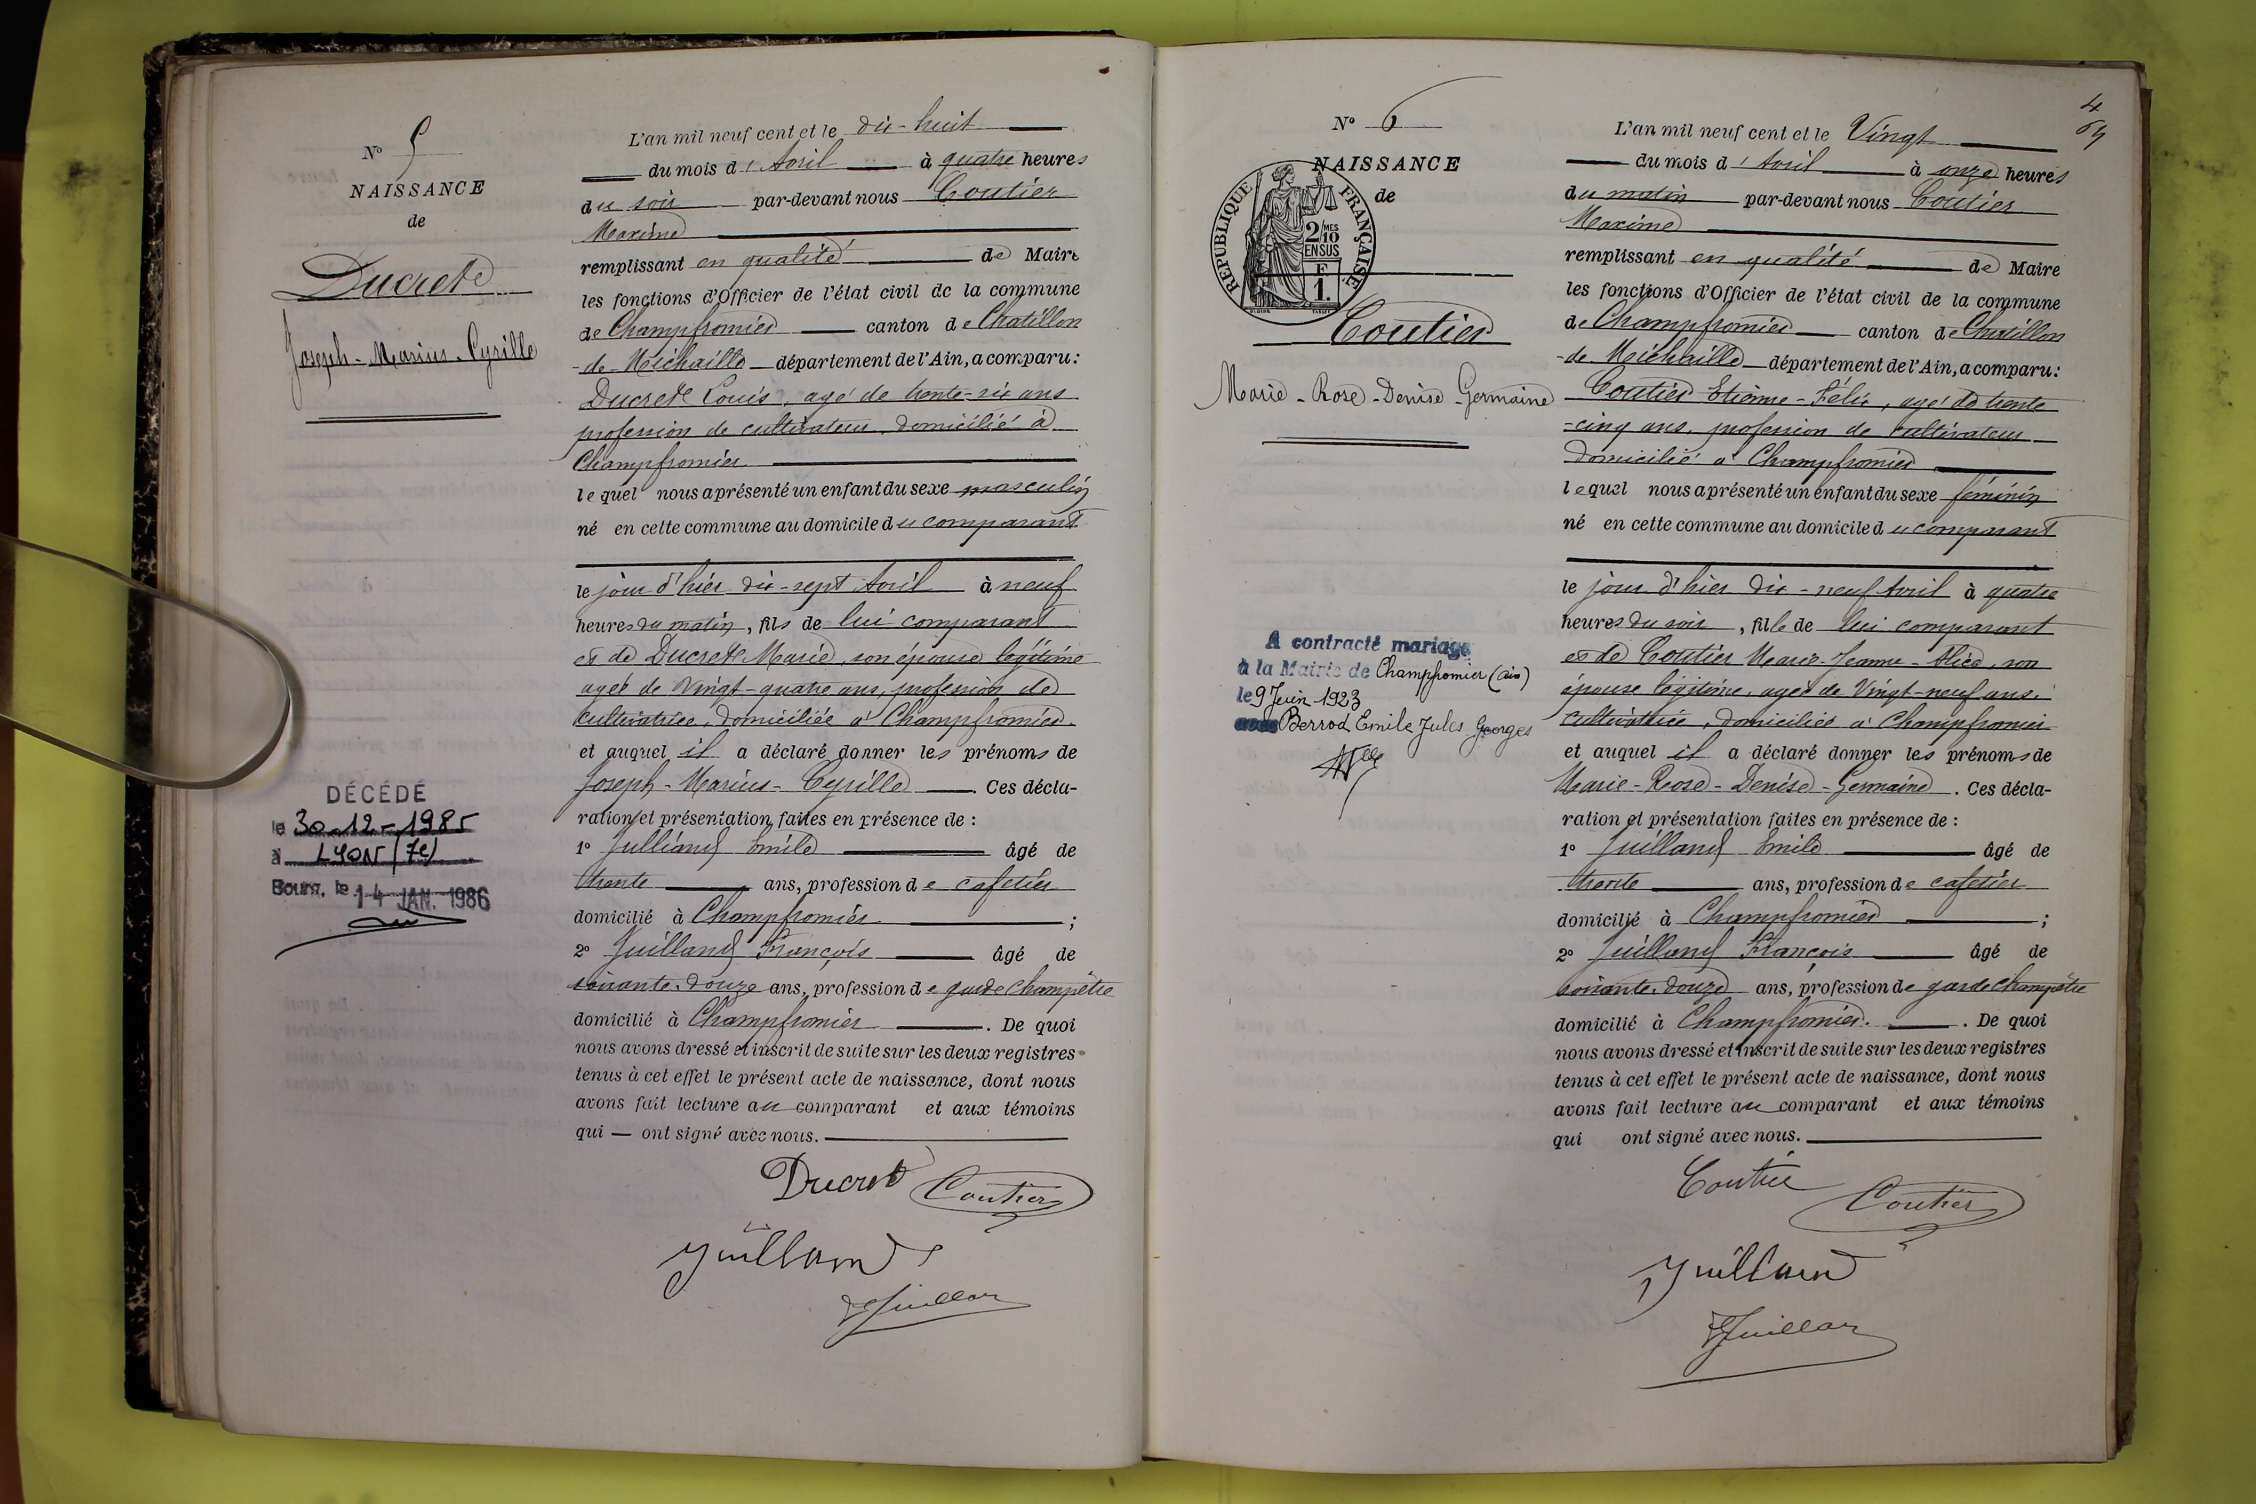 N° 5
NAISSANCE
de
Ducret
Joseph-Marius-Cyrille
DÉCÉDÉ
le 30-12-1985
à LYON (7e)
Bourg, le 14 JAN. 1986
L'an mil neuf cent et le dix-huit
du mois d'Avril à quatre heures
du soir par-devant nous Coutier
Maxime
remplissant en qualité de Maire
les fonctions d'Officier de l'état civil de la commune
de Champfromier canton de Chatillon
-de-Michaille département de l'Ain, a comparu:
Ducret Louis, agé de trente-six ans
profession de cultivateur, domicilié à
Champfromier
lequel nous a présenté un enfant du sexe masculin
né en cette commune au domicile du comparant
le jour d'hier dix-sept Avril à neuf
heures du matin, fils de lui comparant
et de Ducret Marie, son épouse légitime
agée de Vingt-quatre ans, profession de
cultivatrice, domiciliée à Champfromier.
et auquel il a déclaré donner les prénoms de
Joseph-Marius-Cyrille. Ces décla-
ration et présentation faites en présence de:
1° Juilland Emile âgé de
trente ans, profession de cafetier
domicilié à Champfromier;
2° Juilland François âgé de
soixante-douze ans, profession de garde champêtre
domicilié à Champfromier. De quoi
nous avons dressé et inscrit de suite sur les deux registres
tenus à cet effet le présent acte de naissance, dont nous
avons fait lecture au comparant et aux témoins
qui — ont signé avec nous.
Ducret Coutier
Juilland
Juillan
4
N° 6
NAISSANCE
de
REPUBLIQUE FRANÇAISE
2/10 MES
EN SUS
F
1.
Coutier
Marie-Rose-Denise-Germaine
A contracté mariage
à la Mairie de Champfromier (Ain)
le 9 Juin 1923
avec Berrod Emile Jules Georges
L'an mil neuf cent et le Vingt
du mois d'Avril à onze heures
du matin par-devant nous Coutier
Maxime
remplissant en qualité de Maire
les fonctions d'Officier de l'état civil de la commune
de Champfromier canton de Chatillon
-de-Michaille département de l'Ain, a comparu:
Coutier Etienne-Félix, agé de trente
-cinq ans, profession de cultivateur
domicilié à Champfromier
lequel nous a présenté un enfant du sexe féminin
né en cette commune au domicile du comparant
le jour d'hier dix-neuf Avril à quatre
heures du soir, fille de lui comparant
et de Coutier Marie-Jeanne-Alice, son
épouse légitime, agée de Vingt-neuf ans.
cultivatrice, domiciliée à Champfromier
et auquel il a déclaré donner les prénoms de
Marie-Rose-Denise-Germaine. Ces décla-
ration et présentation faites en présence de:
1° Juilland Emile âgé de
trente ans, profession de cafetier
domicilié à Champfromier;
2° Juilland François âgé de
soixante-douze ans, profession de garde champêtre
domicilié à Champfromier. De quoi
nous avons dressé et inscrit de suite sur les deux registres
tenus à cet effet le présent acte de naissance, dont nous
avons fait lecture au comparant et aux témoins
qui ont signé avec nous.
Coutier Coutier
Juilland
Juillan